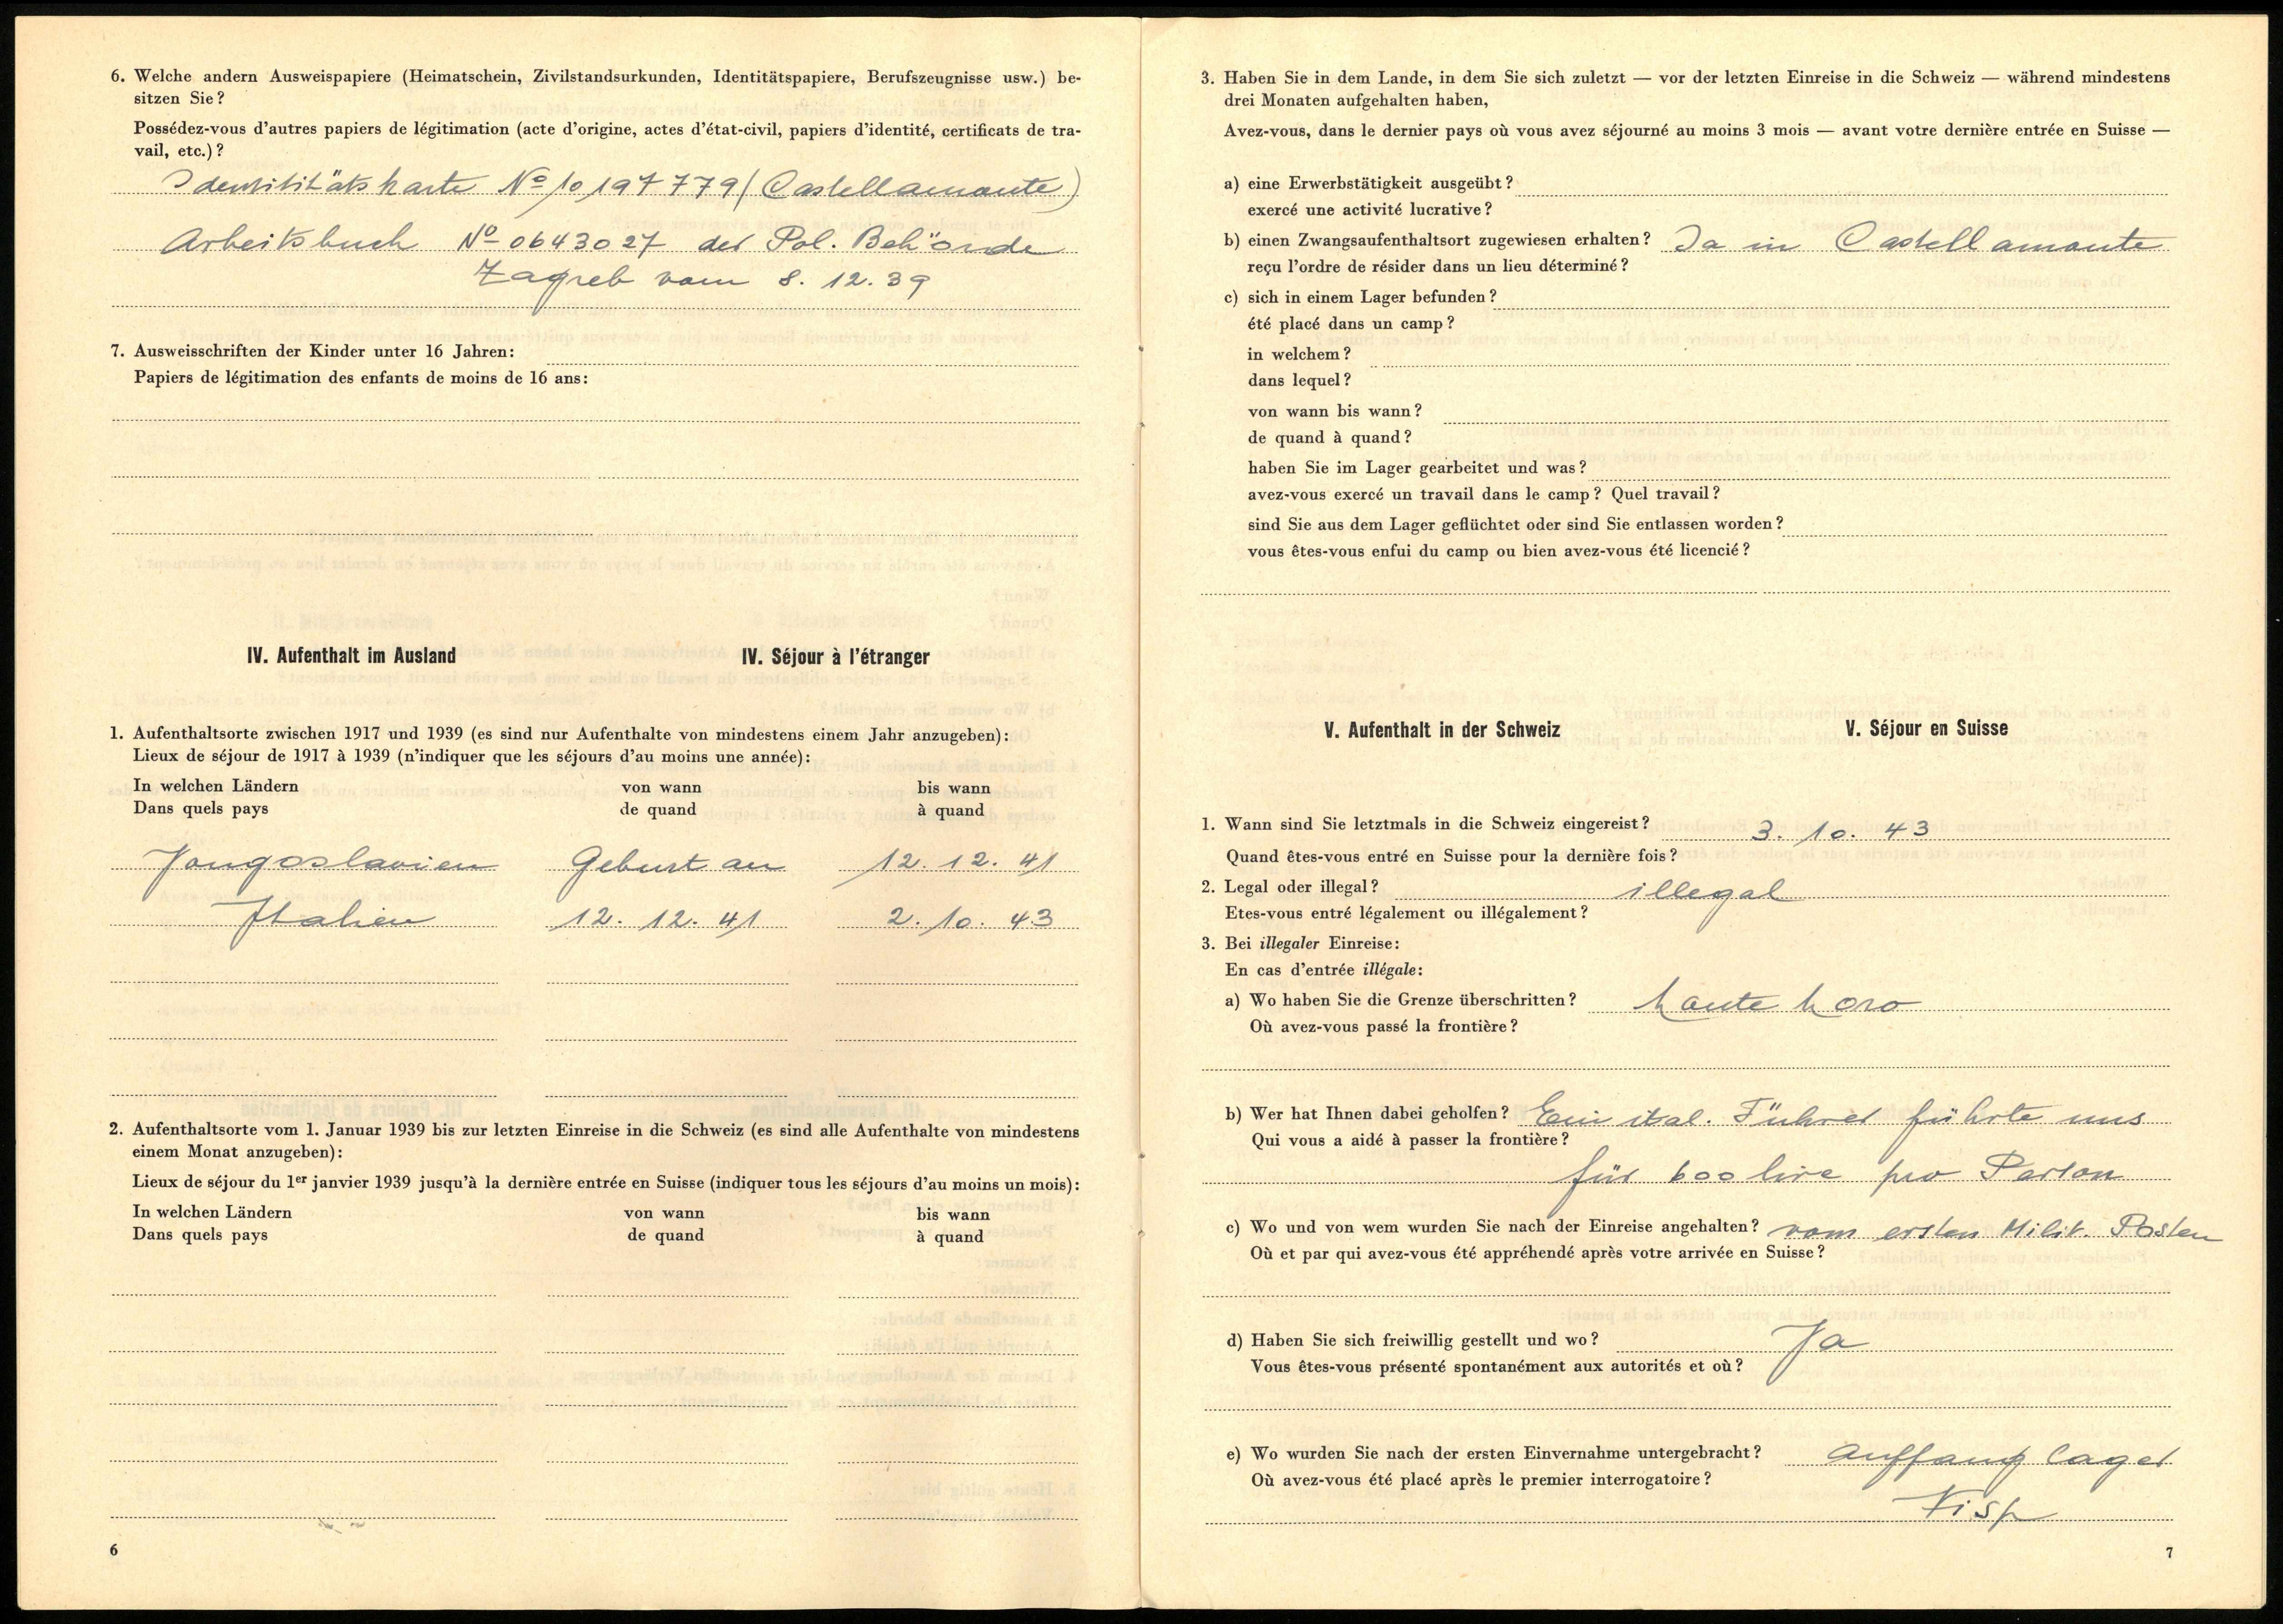 6. Welche andern Ausweispapiere (Heimatschein, Zivilstandsurkunden, Identitätspapiere, Berufszeugnisse usw.) be-
sitzen Sie?
Possédez-vous d'autres papiers de légitimation (acte d'origine, actes d'état-civil, papiers d'identité, certificats de tra-
vail, etc.)?
Identititätskarte No 10197779 (Castellamonte)
Arbeitsbuch No 0643027 der Pol. Behörde
Zagreb vom 8. 12. 39
7. Ausweisschriften der Kinder unter 16 Jahren:
Papiers de légitimation des enfants de moins de 16 ans:
IV. Aufenthalt im Ausland IV. Séjour à l'étranger
1. Aufenthaltsorte zwischen 1917 und 1939 (es sind nur Aufenthalte von mindestens einem Jahr anzugeben):
Lieux de séjour de 1917 à 1939 (n'indiquer que les séjours d'au moins une année):
In welchen Ländern von wann bis wann
Dans quels pays de quand à quand
Jougoslavien Geburt an 12. 12. 41
Italien 12. 12. 41 2. 10. 43
2. Aufenthaltsorte vom 1. Januar 1939 bis zur letzten Einreise in die Schweiz (es sind alle Aufenthalte von mindestens
einem Monat anzugeben):
Lieux de séjour du 1er janvier 1939 jusqu'à la dernière entrée en Suisse (indiquer tous les séjours d'au moins un mois):
In welchen Ländern von wann bis wann
Dans quels pays de quand à quand
6
3. Haben Sie in dem Lande, in dem Sie sich zuletzt — vor der letzten Einreise in die Schweiz — während mindestens
drei Monaten aufgehalten haben,
Avez-vous, dans le dernier pays où vous avez séjourné au moins 3 mois — avant votre dernière entrée en Suisse —
a) eine Erwerbstätigkeit ausgeübt?
exercé une activité lucrative?
b) einen Zwangsaufenthaltsort zugewiesen erhalten? Ja in Castellamonte
reçu l'ordre de résider dans un lieu déterminé?
c) sich in einem Lager befunden?
été placé dans un camp?
in welchem?
dans lequel?
von wann bis wann?
de quand à quand?
haben Sie im Lager gearbeitet und was?
avez-vous exercé un travail dans le camp? Quel travail?
sind Sie aus dem Lager geflüchtet oder sind Sie entlassen worden?
vous êtes-vous enfui du camp ou bien avez-vous été licencié?
V. Aufenthalt in der Schweiz V. Séjour en Suisse
1. Wann sind Sie letztmals in die Schweiz eingereist? 3. 10. 43
Quand êtes-vous entré en Suisse pour la dernière fois?
2. Legal oder illegal? illegal
Etes-vous entré légalement ou illégalement?
3. Bei illegaler Einreise:
En cas d'entrée illégale:
a) Wo haben Sie die Grenze überschritten?
Où avez-vous passé la frontière?
b) Wer hat Ihnen dabei geholfen? Ein ital. Führer führte uns
Qui vous a aidé à passer la frontière?
für 600 lire pro Person
c) Wo und von wem wurden Sie nach der Einreise angehalten? vom ersten Milit. Posten
Où et par qui avez-vous été appréhendé après votre arrivée en Suisse?
d) Haben Sie sich freiwillig gestellt und wo? Ja
Vous êtes-vous présenté spontanément aux autorités et où?
e) Wo wurden Sie nach der ersten Einvernahme untergebracht? Auffang lager
Où avez-vous été placé après le premier interrogatoire?
Visp
7